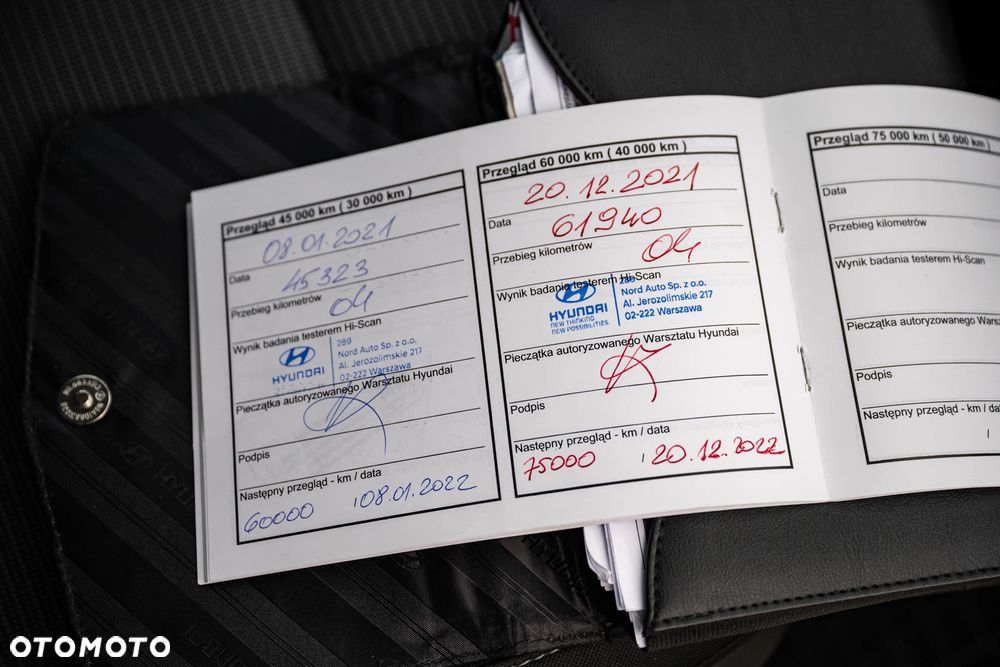 Przegląd 45 000 km ( 30 000 km )
08.01.2021
Data
45323
Przebieg kilometrów
04
Wynik badania testerem Hi-Scan
HYUNDAI
289
Nord Auto Sp. z o.o.
Al. Jerozolimskie 217
02-222 Warszawa
Pieczątka autoryzowanego Warsztatu Hyundai
Podpis
Następny przegląd - km / data
60000 / 08.01.2022
Przegląd 60 000 km ( 40 000 km )
20.12.2021
Data
61940
Przebieg kilometrów
04
Wynik badania testerem Hi-Scan
HYUNDAI
NEW THINKING.
NEW POSSIBILITIES.
289
Nord Auto Sp. z o.o.
Al. Jerozolimskie 217
02-222 Warszawa
Pieczątka autoryzowanego Warsztatu Hyundai
Podpis
Następny przegląd - km / data
75000 / 20.12.2022
Przegląd 75 000 km ( 50 000 km )
Data
Przebieg kilometrów
Wynik badania testerem Hi-Scan
Pieczątka autoryzowanego
Podpis
Następny przegląd - km / dat
/
OTOMOTO